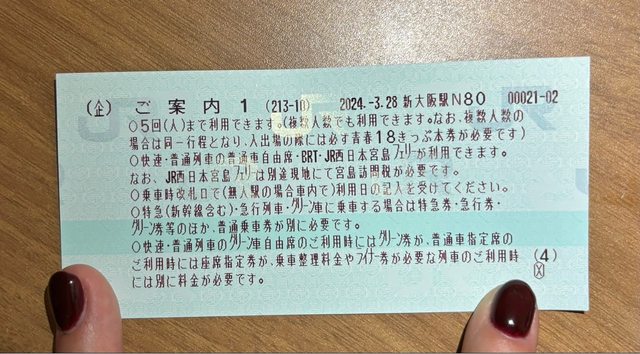 (企) ご案内1 (213-10) 2024.-3.28 新大阪駅N80 00021-02
○5回(人)まで利用できます。(複数人数でも利用できます。なお、複数人数の
場合は同一行程となり、入出場の際には必ず青春18きっぷ本券が必要です)
○快速・普通列車の普通車自由席・BRT・JR西日本宮島フェリーが利用できます。
なお、JR西日本宮島フェリーは別途現地にて宮島訪問税が必要です。
○乗車時改札口で(無人駅の場合車内で)利用日の記入を受けてください。
○特急(新幹線含む)・急行列車・グリーン車に乗車する場合は特急券・急行券・
グリーン券等のほか、普通乗車券が別に必要です。
○快速・普通列車のグリーン車自由席のご利用時にはグリーン券が、普通車指定席の
ご利用時には座席指定券が、乗車整理料金やライナー券が必要な列車のご利用時
には別に料金が必要です。
(4)